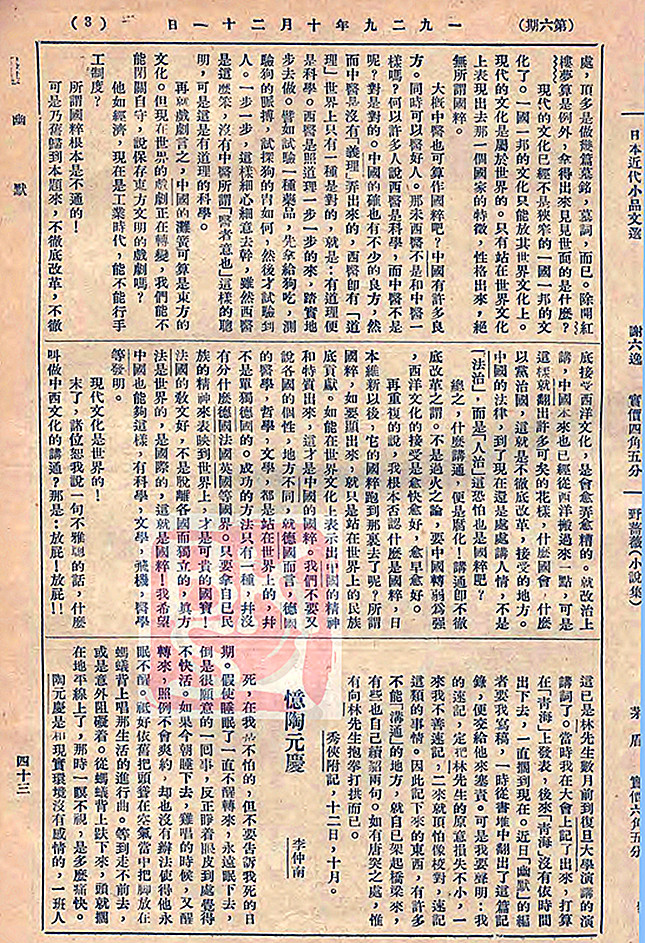 日本近代小品文選　謝六逸　實價四角五分　野薔薇（小說集）　茅盾　實價六角五分
（第六期）　一九二九年十月二十一日　（3）
處，頂多是做幾篇墓銘，墓詞，而已。除開紅
樓夢算是例外，拿得出來見見世面的是什麼？
現代的文化已經不是狹窄的一國一邦的文
化了。一國一邦的文化只能放其世界文化上。
現代的文化是屬於世界的。只有站在世界文化
上表現出去那一個國家的特徵，性格出來，絕
無所謂國粹。
大概中醫也可算作國粹吧？中國有許多良
方。同時可以醫好人。那末西醫不是和中醫一
樣嗎？何以許多人說西醫是科學，而中醫不是
呢？對是對的。中國的確也有不少的良方，然
而中醫是沒有「義理」弄出來的，西醫即有「道
理」世界上只有一種是對的，就是：有道理便
是科學。西醫是照道理一步一步的來，踏實地
步去做。譬如試驗一種藥品，先拿給狗吃，測
驗狗的脈搏，試探狗的胃如何，然後才試驗到
人。一步一步，這樣細心細意去幹，雖然西醫
是這麼笨，沒有中醫所謂「醫者意也」這樣的聰
明，可是這是有道理的科學。
再就戲劇言之，中國的灘簧可算是東方的
文化。但現在世界的戲劇正在轉變，我們能不
能閉關自守，說保存東方文明的戲劇嗎？
他如經濟，現在是工業時代，能不能行手
工制度？
所謂國粹根本是不通的！
可是乃舊歸到本題來，不徹底改革，不徹
底接受西洋文化，是會愈弄愈糟的。就政治上
講，中國本來也已經從西洋搬過來一點，可是
這樣就翻出許多可笑的花樣，什麼國會，什麼
以黨治國，這就是不徹底改革，接受的地方。
中國的法律，到了現在還是處處講人情，不是
「法治」，而是「人治」這恐怕也是國粹吧？
總之，什麼講通，便是腐化！講通即不徹
底改革之謂。不是過火之論，要中國轉弱為強
，西洋文化的接受是愈快愈好，愈早愈好。
再重複的說，我根本否認什麼是國粹，日
本維新以後，它的國粹跑到那裏去了呢？所謂
國粹，如要顯出來，就只是站在世界上的民族
底貢獻。如能在世界文化上表示出中國的精神
和特質出來，這才是中國的國粹。我們不要又
說各國的個性，地方不同，就德國而言，德國
的醫學，哲學，文學，都是站在世界上的，幷
不是單獨德國的。成功的方法只有一種，幷沒
有分什麼德國法國英國等國界。只要拿自己民
族的精神來表映到世界上，才是可貴的國寶！
法國的散文好，不是脫離各國而獨立的，真方
法是世界的，是國際的，這就是國粹！我希望
中國也能夠這樣，有科學，文學，飛機，醫學
等發明。
現代文化是世界的！
末了，諸位恕我說一句不雅聽的話，什麼
叫做中西文化的講通？那是：放屁！放屁！！
這已是林先生數月前到復旦大學演講的演
講詞了。當時我在大會上記了出來，打算
在「青海」上發表，後來「青海」沒有依時間
出下去，一直擱到現在。近日「幽默」的編
者要我寫稿，一時從書堆中翻出了這篇記
錄，便交給他來塞責。可是我要聲明：我
的速記，定把林先生的原意損失不小，一
來我不善速記，二來就頂怕像校對，速記
這類的事情。因此記下來的東西，有許多
不能「溝通」的地方，就自已架起橋梁來，
有些也自己續貂兩句。如有唐突之處，惟
有向林先生抱拳打拱而已。
秀俠附記，十二日，十月。
憶陶元慶
李仲南
死，在我並不怕的，但不要告訴我死的日
期。假使睡眠了一直不醒轉來，永遠眠下去，
倒是很願意的一回事，反正睜着眼皮到處覺得
不快活。如果今朝睡下去，雞唱的時候，又醒
轉來，照例不會爽約，却也沒有辦法使得他永
眠不醒。祇好依舊把頭聳在空氣當中把脚放在
螞蟻背上唱那生活的進行曲。等到走不前去，
或是意外阻礙着。從螞蟻背上趺下來，頭就擱
在地平線上了，那時一瞑不視，是多麽痛快。
陶元慶是和現實環境沒有感情的，一班人
幽默
四十三